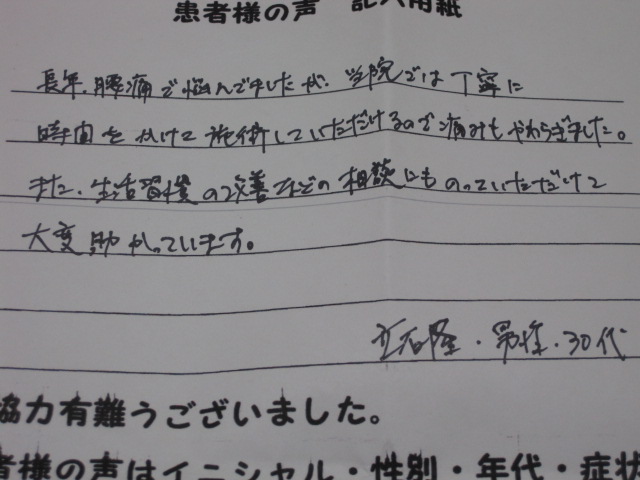 患者様の声 記入用紙
長年、腰痛で悩んでましたが、当院では丁寧に
時間をかけて施術していただけるので痛みもやわらぎました。
また、生活習慣の改善などの相談にものっていただけて
大変助かっています。
・男性・30代
協力有難うございました。
者様の声はイニシャル・性別・年代・症状